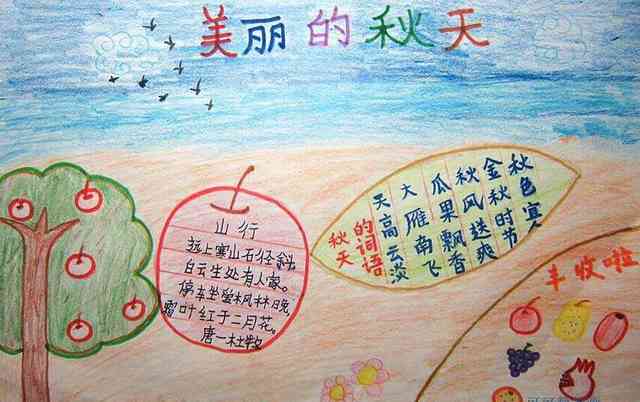 美丽的秋天
山行
远上寒山石径斜,
白云生处有人家。
停车坐爱枫林晚,
霜叶红于二月花。
唐一杜牧
秋天
的词语
天高云淡
大雁南飞
瓜果飘香
秋风送爽
金秋时节
秋色宜人
丰收啦